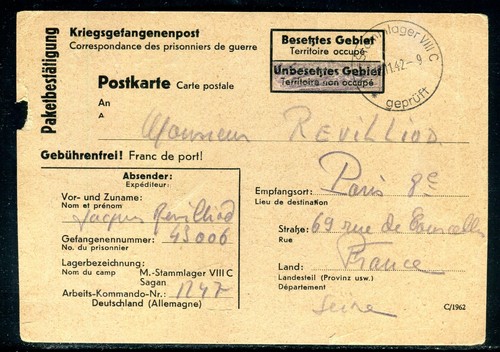 Paketbestätigung
Kriegsgefangenenpost
Correspondance des prisonniers de guerre
Besetztes Gebiet
Territoire occupé
Unbesetztes Gebiet
Territoire non occupé
Stammlager VIII C
11.42-9
geprüft
Postkarte Carte postale
An
A
Monsieur REVILLIOD
Gebührenfrei! Franc de port!
Absender:
Expéditeur:
Vor- und Zuname:
Nom et prénom
Jacques Revilliod
Gefangenennummer: 43006
No. du prisonnier
Lagerbezeichnung:
Nom du camp M.-Stammlager VIII C
Sagan
Arbeits-Kommando-Nr.: 1247
Deutschland (Allemagne)
Empfangsort: Paris 8e
Lieu de destination
Straße: 69 rue de Courcelles
Rue
Land: France
Landesteil (Provinz usw.)
Département
Seine
C/1962